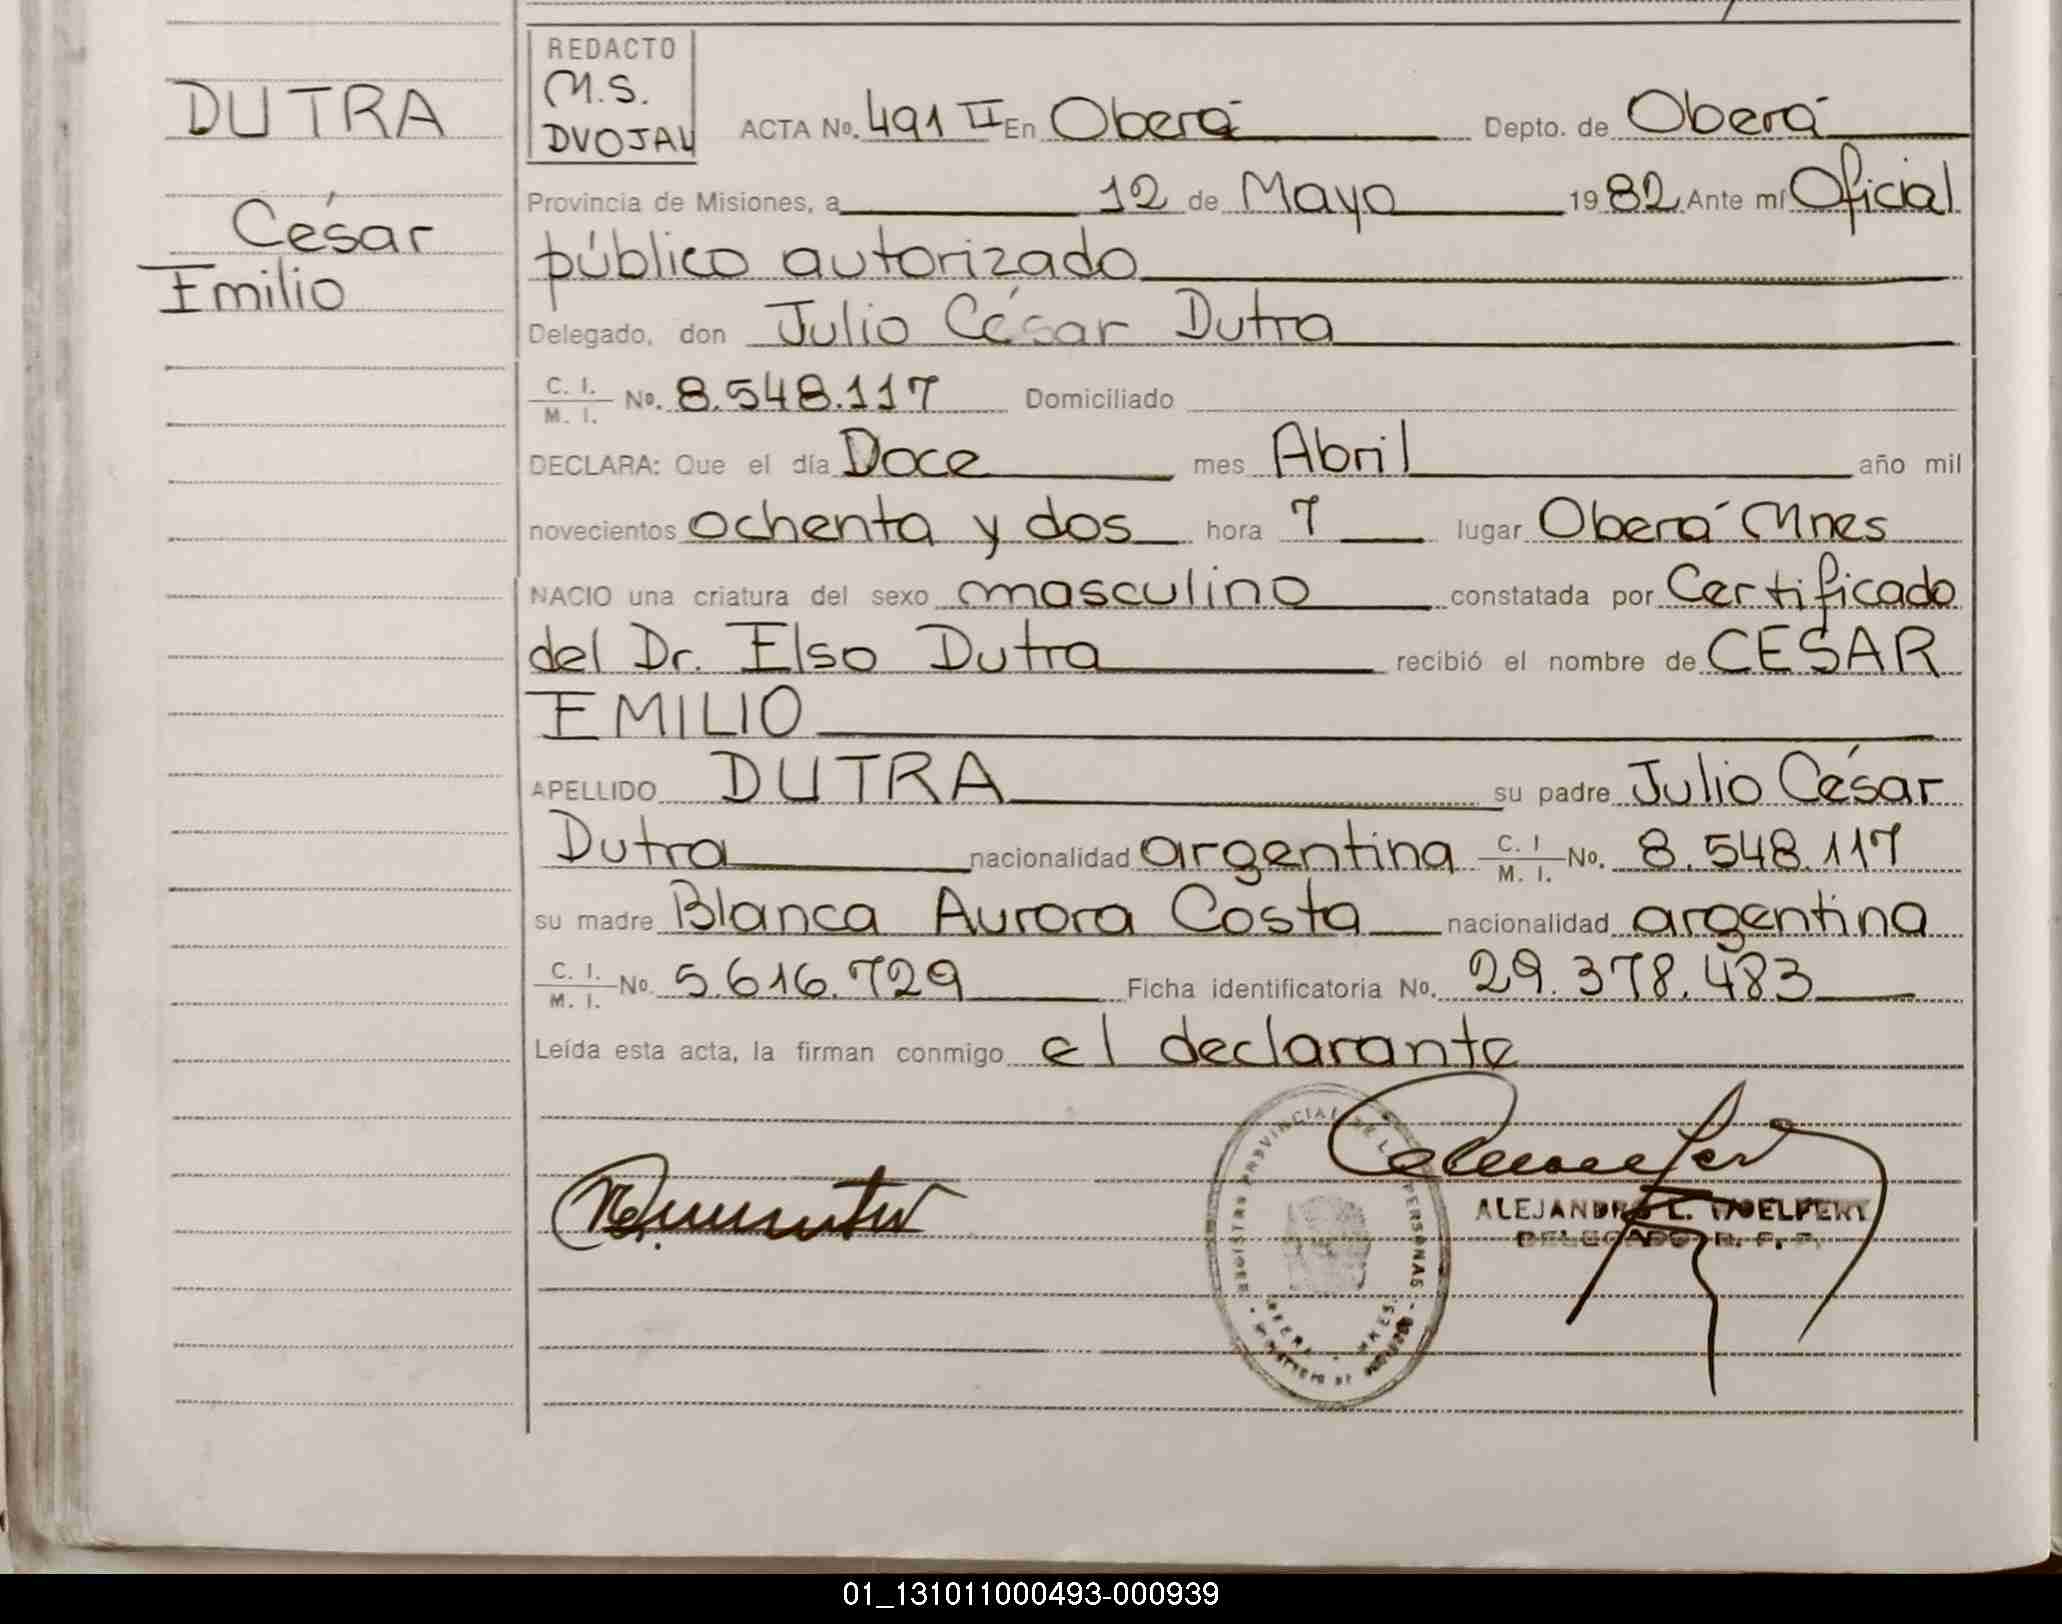 DUTRA
César
Emilio
REDACTO
M.S.
DVOJAK
ACTA No. 491 II En Oberá Depto. de Oberá
Provincia de Misiones, a 12 de Mayo 1982 Ante mí Oficial
público autorizado
Delegado, don Julio César Dutra
C. I.
M. I. No. 8.548.117 Domiciliado
DECLARA: Que el día Doce mes Abril año mil
novecientos ochenta y dos hora 7 lugar Oberá Mnes
NACIO una criatura del sexo masculino constatada por Certificado
del Dr. Elso Dutra recibió el nombre de CESAR
EMILIO
APELLIDO DUTRA su padre Julio César
Dutra nacionalidad argentina C. I
M. I. No. 8.548.117
su madre Blanca Aurora Costa nacionalidad argentina
C. I.
M. I. No. 5.616.729 Ficha identificatoria No. 29.378.483
Leída esta acta, la firman conmigo el declarante
PROVINCIAL DE PERSONAS
ALEJANDRO
DELEGADO R. P. P.
01_131011000493-000939